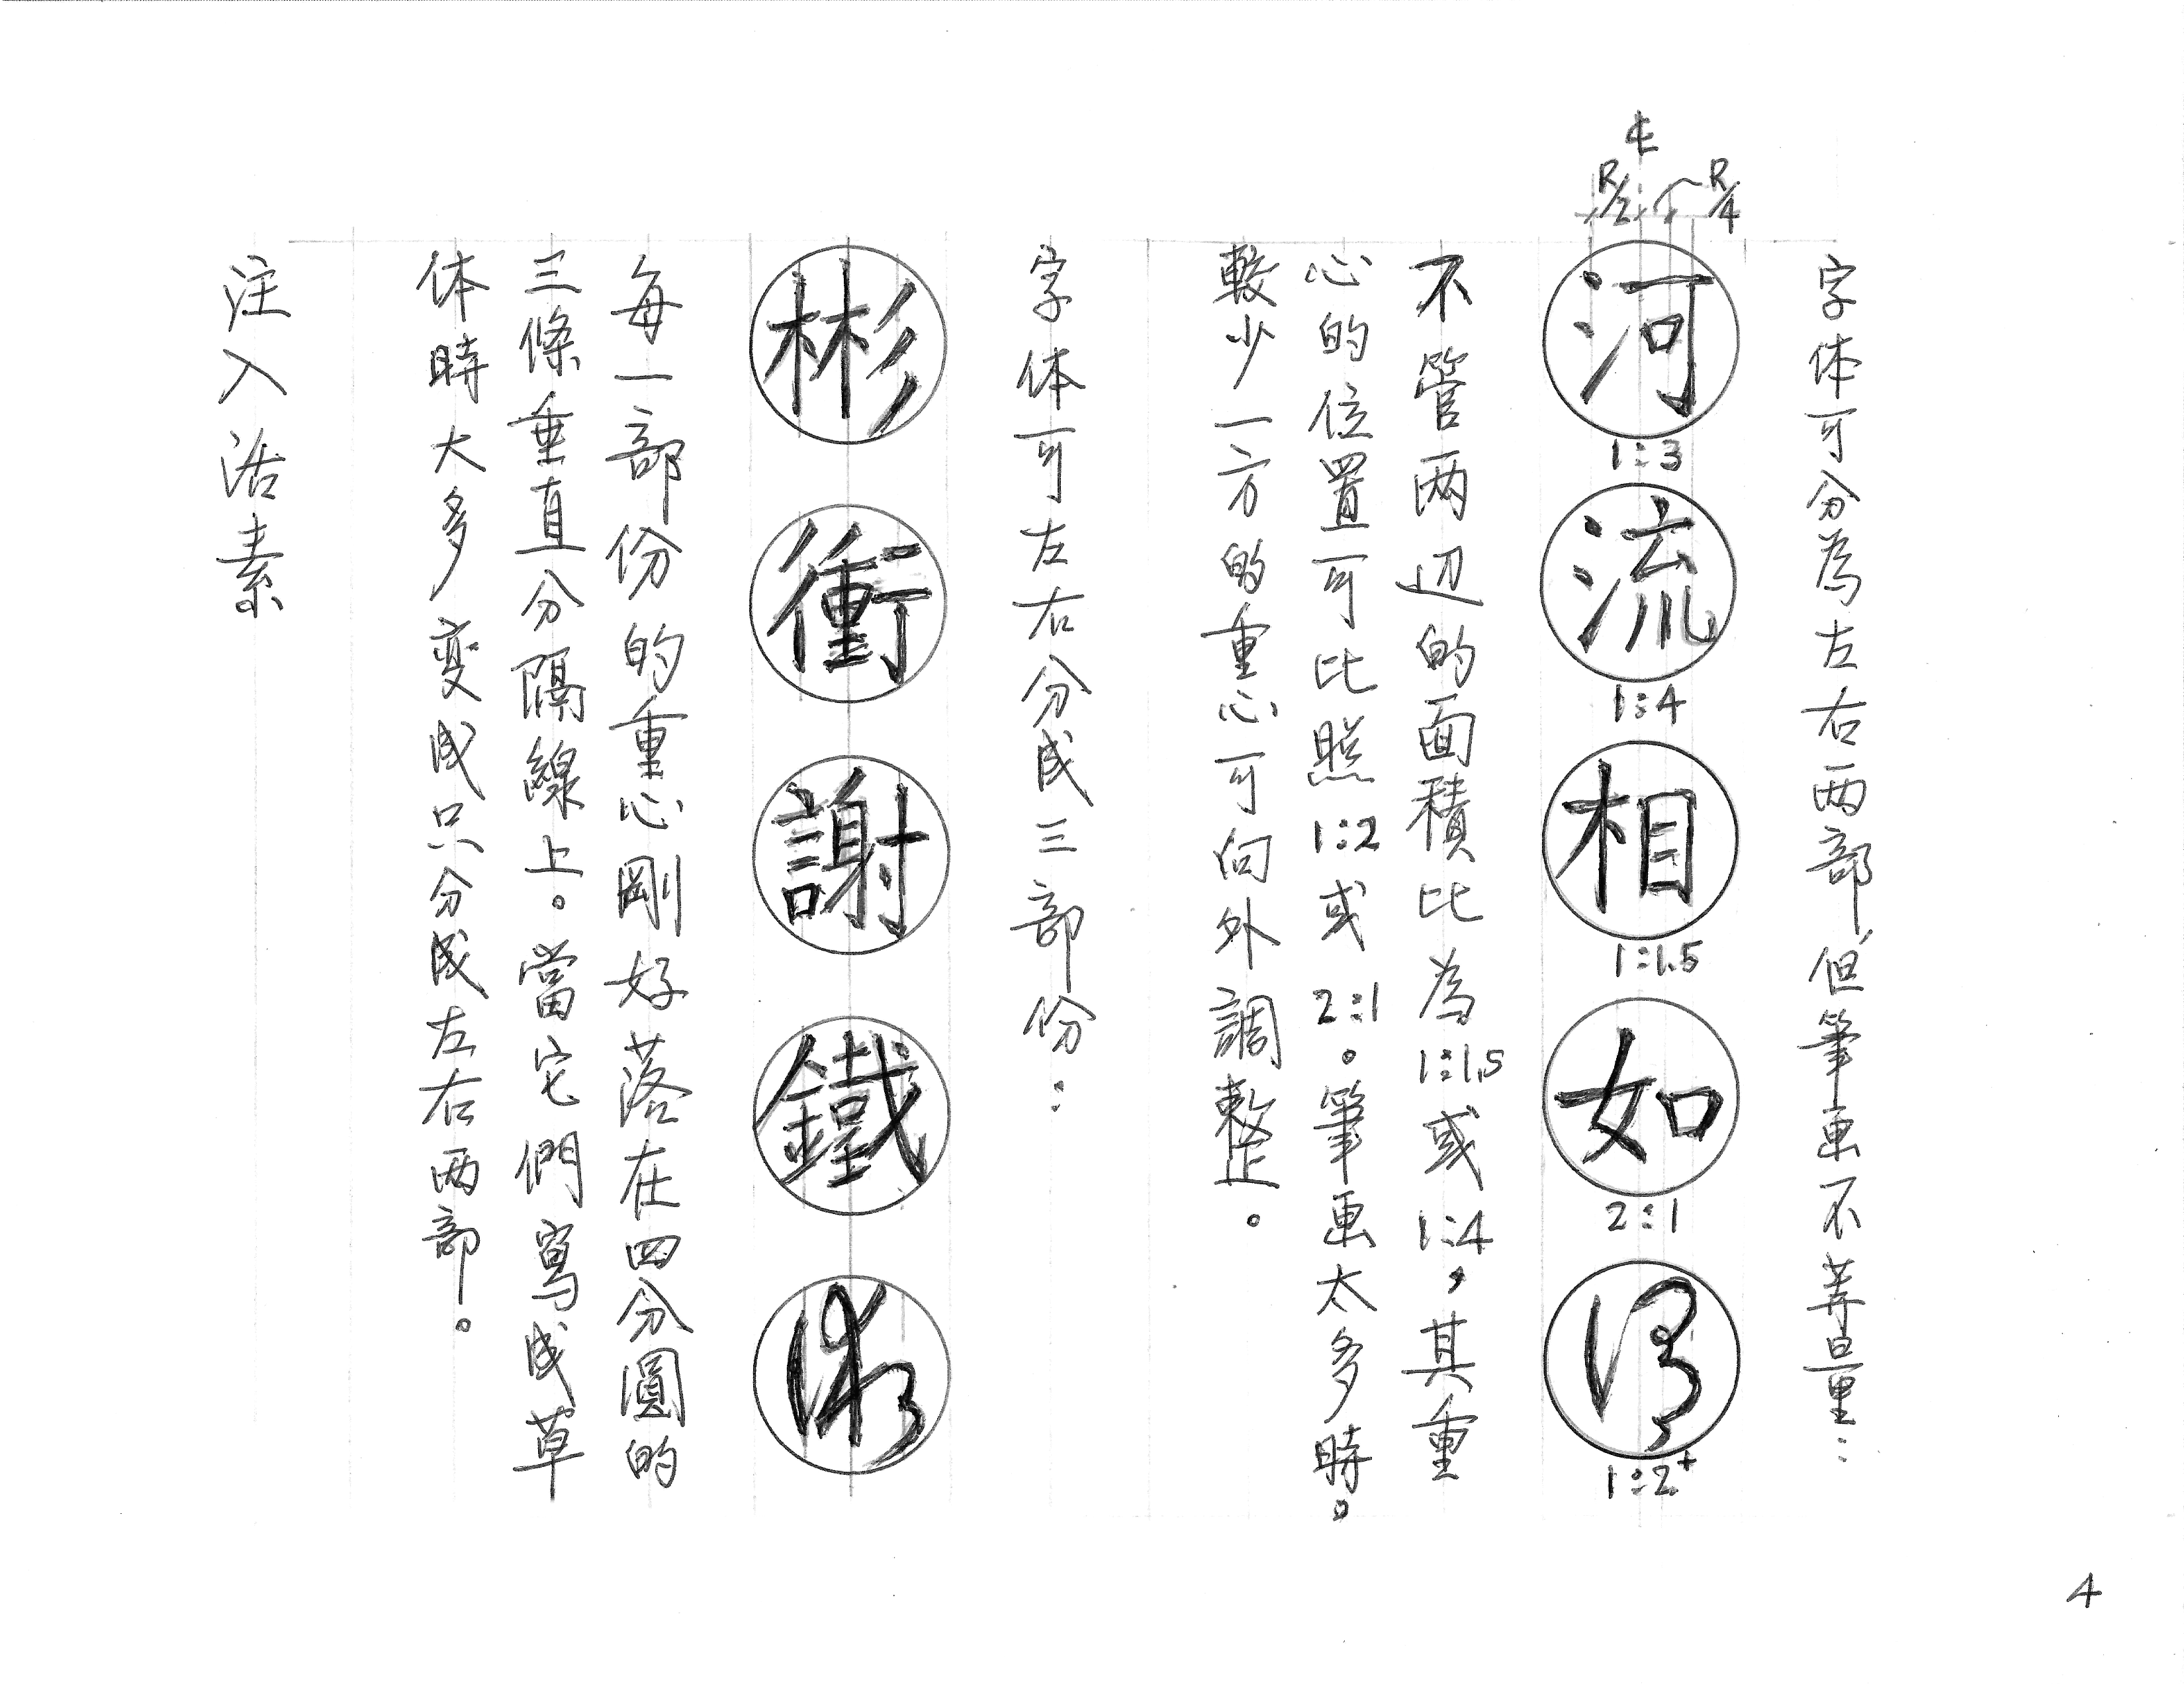 字体可分為左右两部,但筆画不等量:
℄
R/2 R/4
河
1:3
流
1:4
相
1:1.5
如
2:1
1:2+
不管两辺的面積比為1:1.5或1:4,其重
心的位置可比照1:2或2:1。筆画太多時。
較少一方的重心可向外調整。
字体可左右分成三部份:
彬
衝
謝
鐵
每一部份的重心剛好落在四分圓的
三條垂直分隔線上。當它們寫成草
体時大多变成只分成左右两部。
注入活素
4